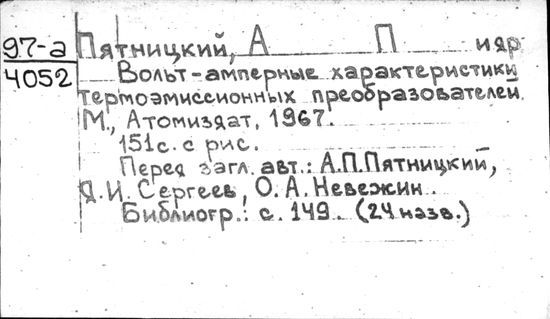 97-а Пятницкий, А П и др
4052 Вольт-амперные характеристики
термоэмиссионных преобразователей.
М., Атомиздат, 1967.
151с. с рис.
Перед загл. авт.: А.П.Пятницкий,
Я.И.Сергеев, О.А.Невежин.
Библиогр.: с.149. (24 назв.)